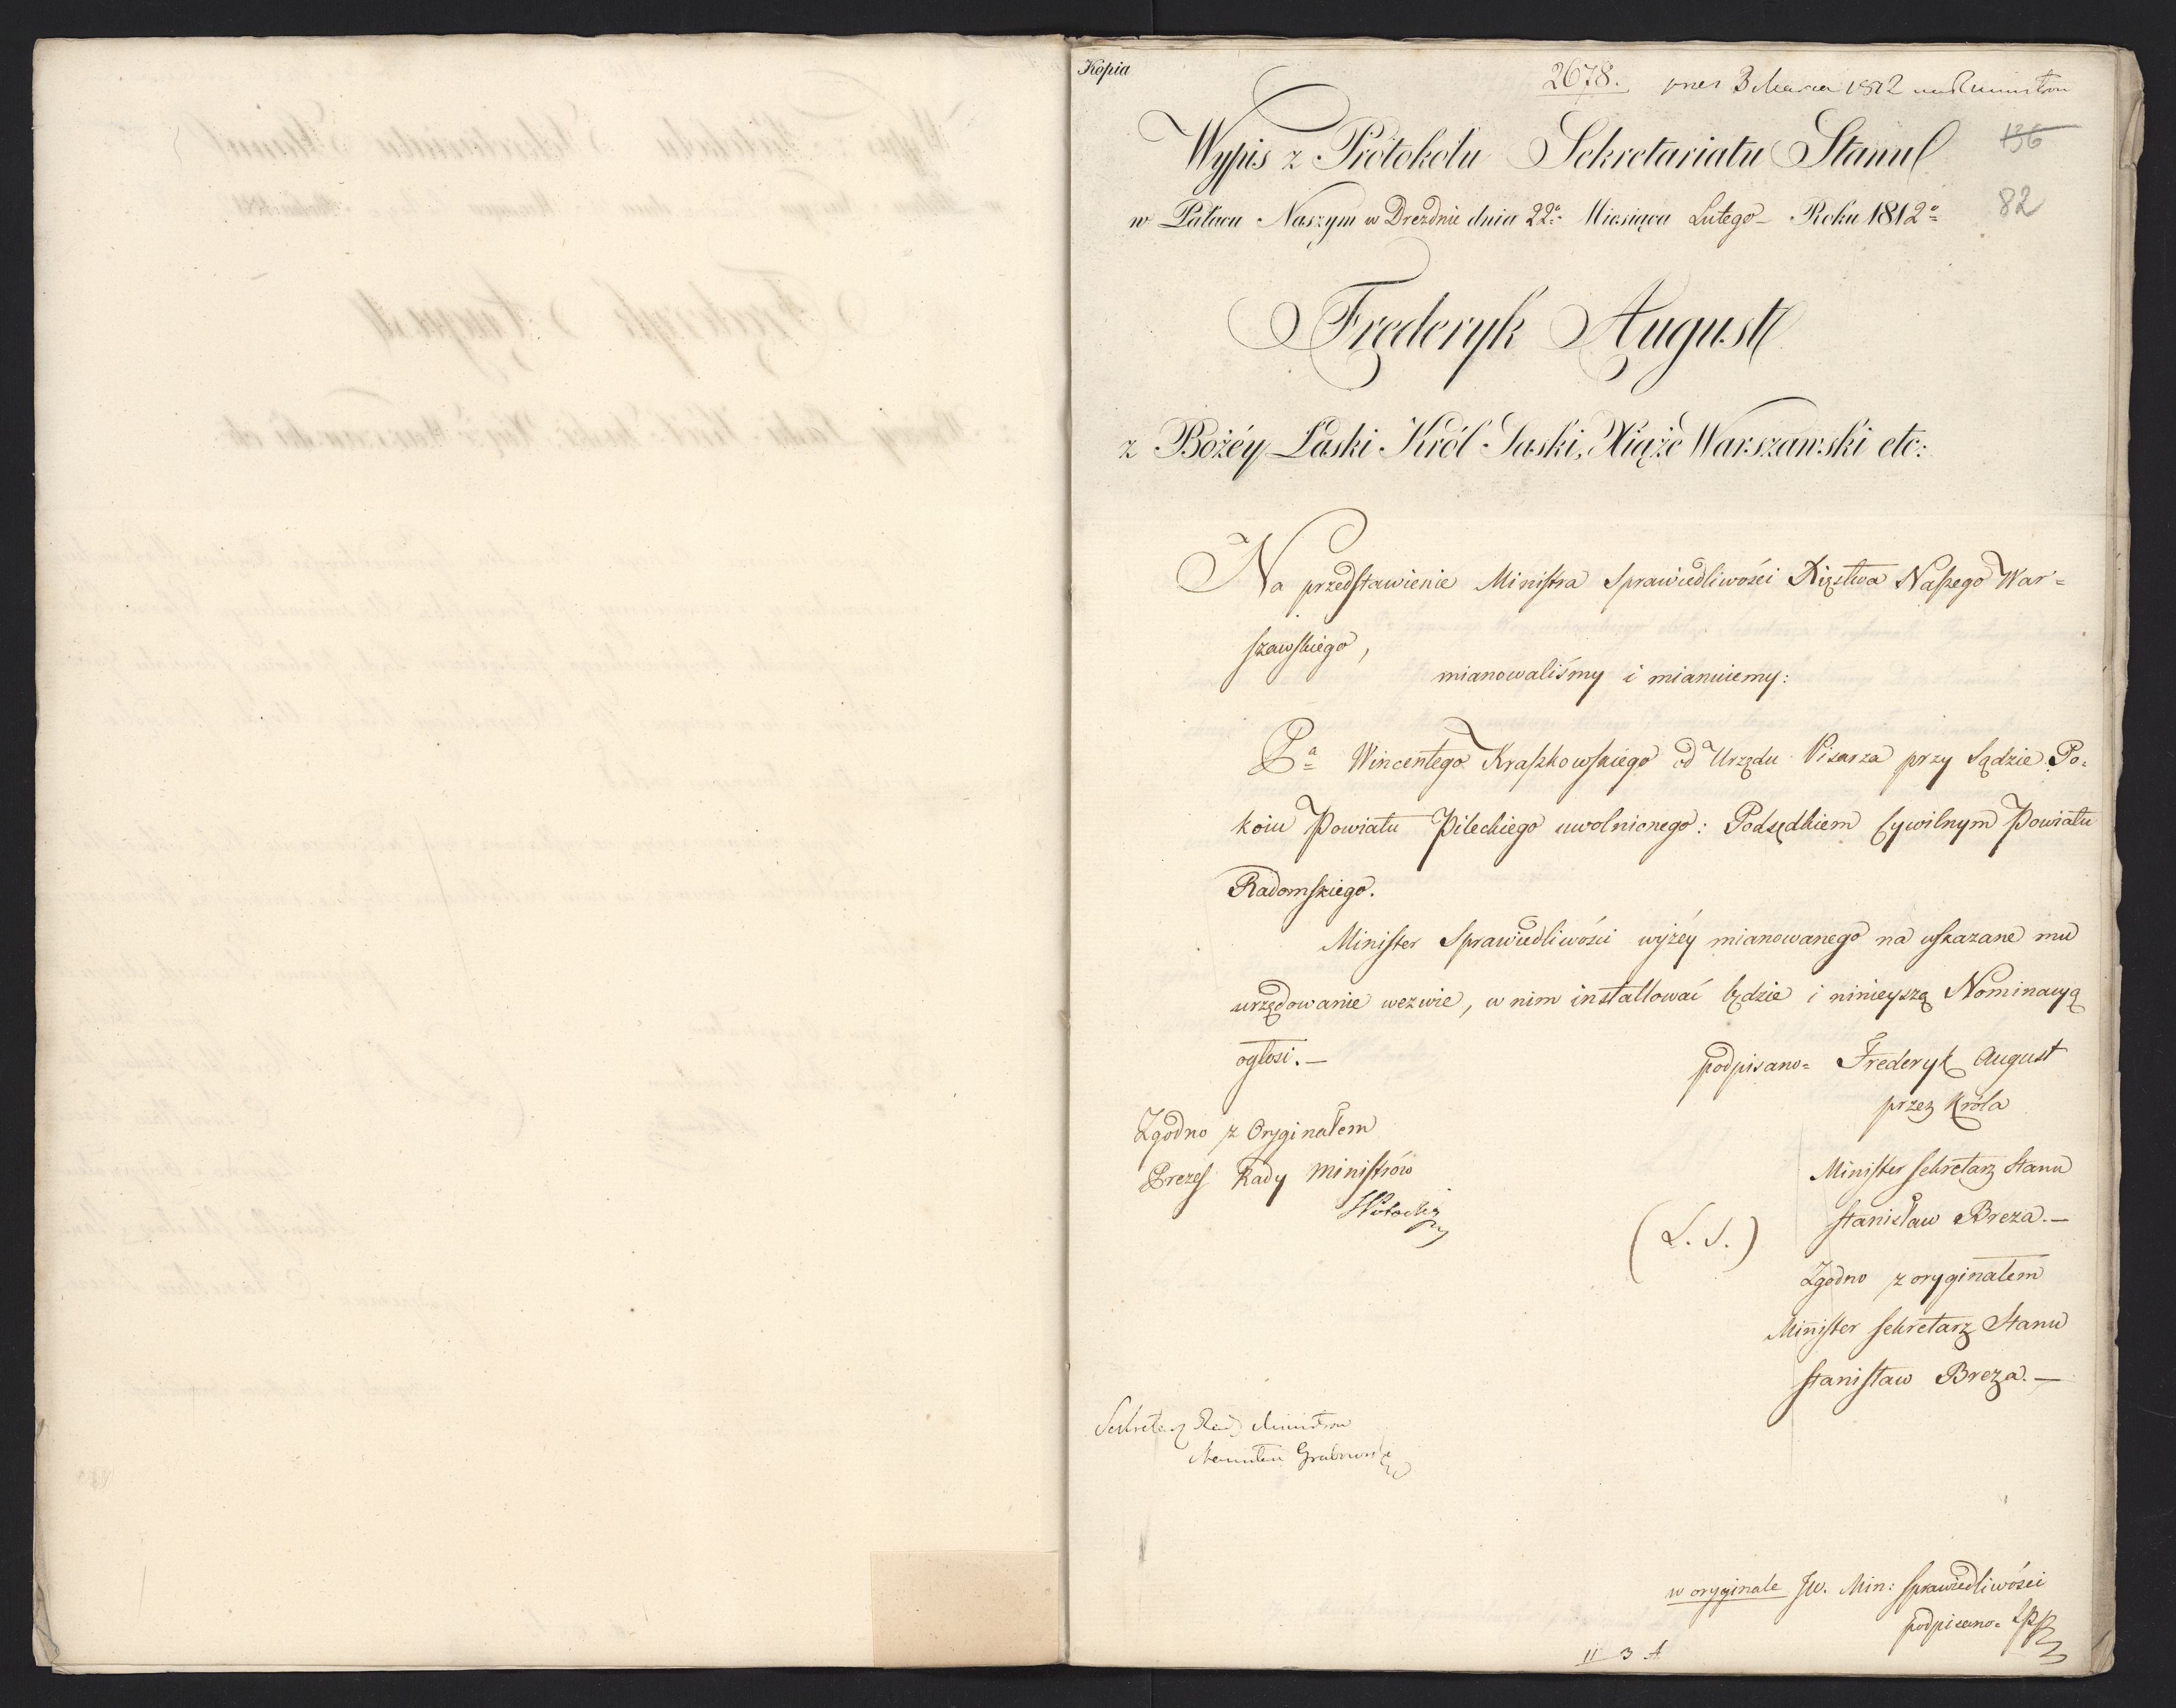 Kopia
2678. 3 Marca 1812
Wypis z Protokołu Sekretariatu Stanu
136
w Pałacu Naszym w Dreźdnie dnia 22º Miesiąca Lutego Roku 1812º
82
Frederyk August
z Bożéy Łaski Król Saski, Xiąże Warszawski etc:
Na przedstawienie Ministra Sprawiedliwości Xięstwa Naszego War=
szawskiego,
mianowaliśmy i mianuiemy:
Pª Wincentego Kraszkowskiego od Urzędu Pisarza przy Sądzie Po=
koiu Powiatu Pileckiego uwolnionego: Podsędkiem Cywilnym Powiatu
Radomskiego.
Minister Sprawiedliwości wyżéy mianowanego na wskazane mu
urzędowanie wezwie, w nim installować będzie i ninieyszą Nominacyą
ogłosi.—
podpisano= Frederyk August
przez Króla
Zgodno z Oryginałem
Prezes Rady Ministrów
Minister Sekretarz Stanu
Stanisław Breza.—
(L. S.)
Zgodno z oryginałem
Minister Sekretarz Stanu
Stanisław Breza.—
Sekretarz Rady Ministrów
Grabowski
w oryginale JW. Min: Sprawiedliwości
podpisano=
II 3 A